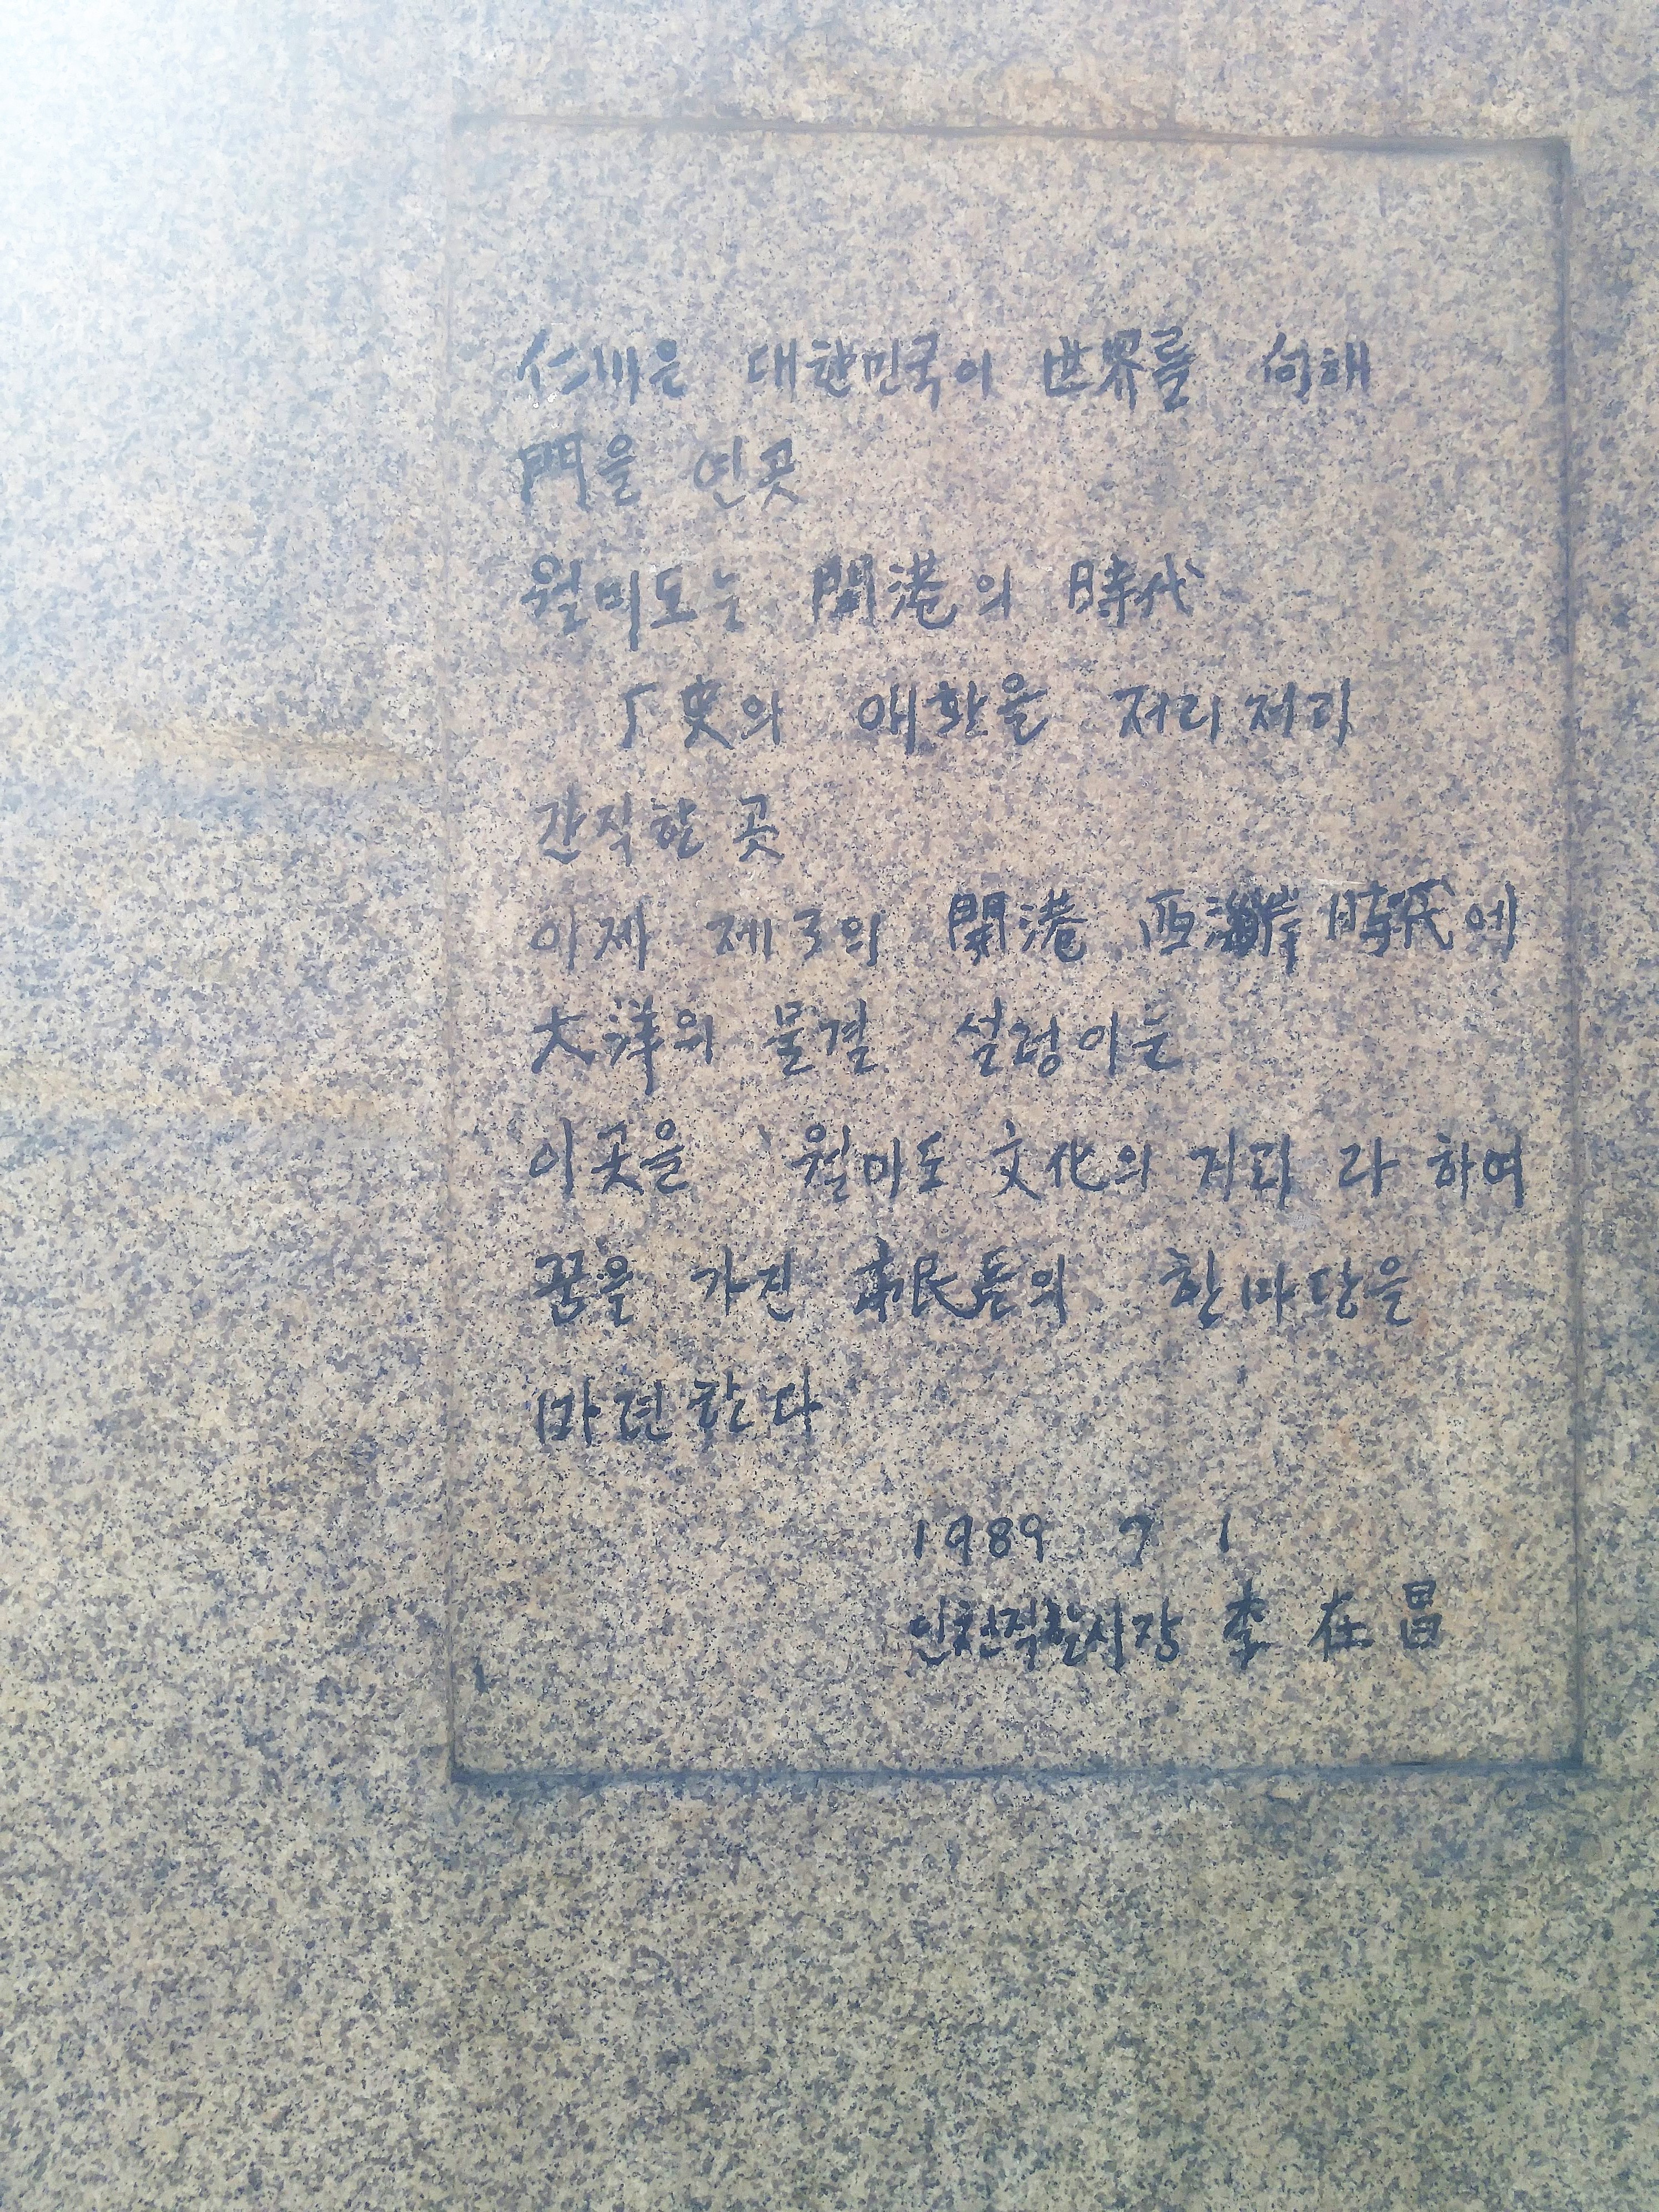 仁川은 대한민국이 世界를 向해
門을 연곳
월미도는 開港의 時代
史의 애환을 저리저리
간직한 곳
이제 제3의 開港 西海岸 時代에
大洋의 물결 설렁이는
이곳을 월미도 文化의 거리 라 하여
꿈을 가진 市民들의 한마당을
마련한다
1989 7 1
인천직할시장 李 在 昌